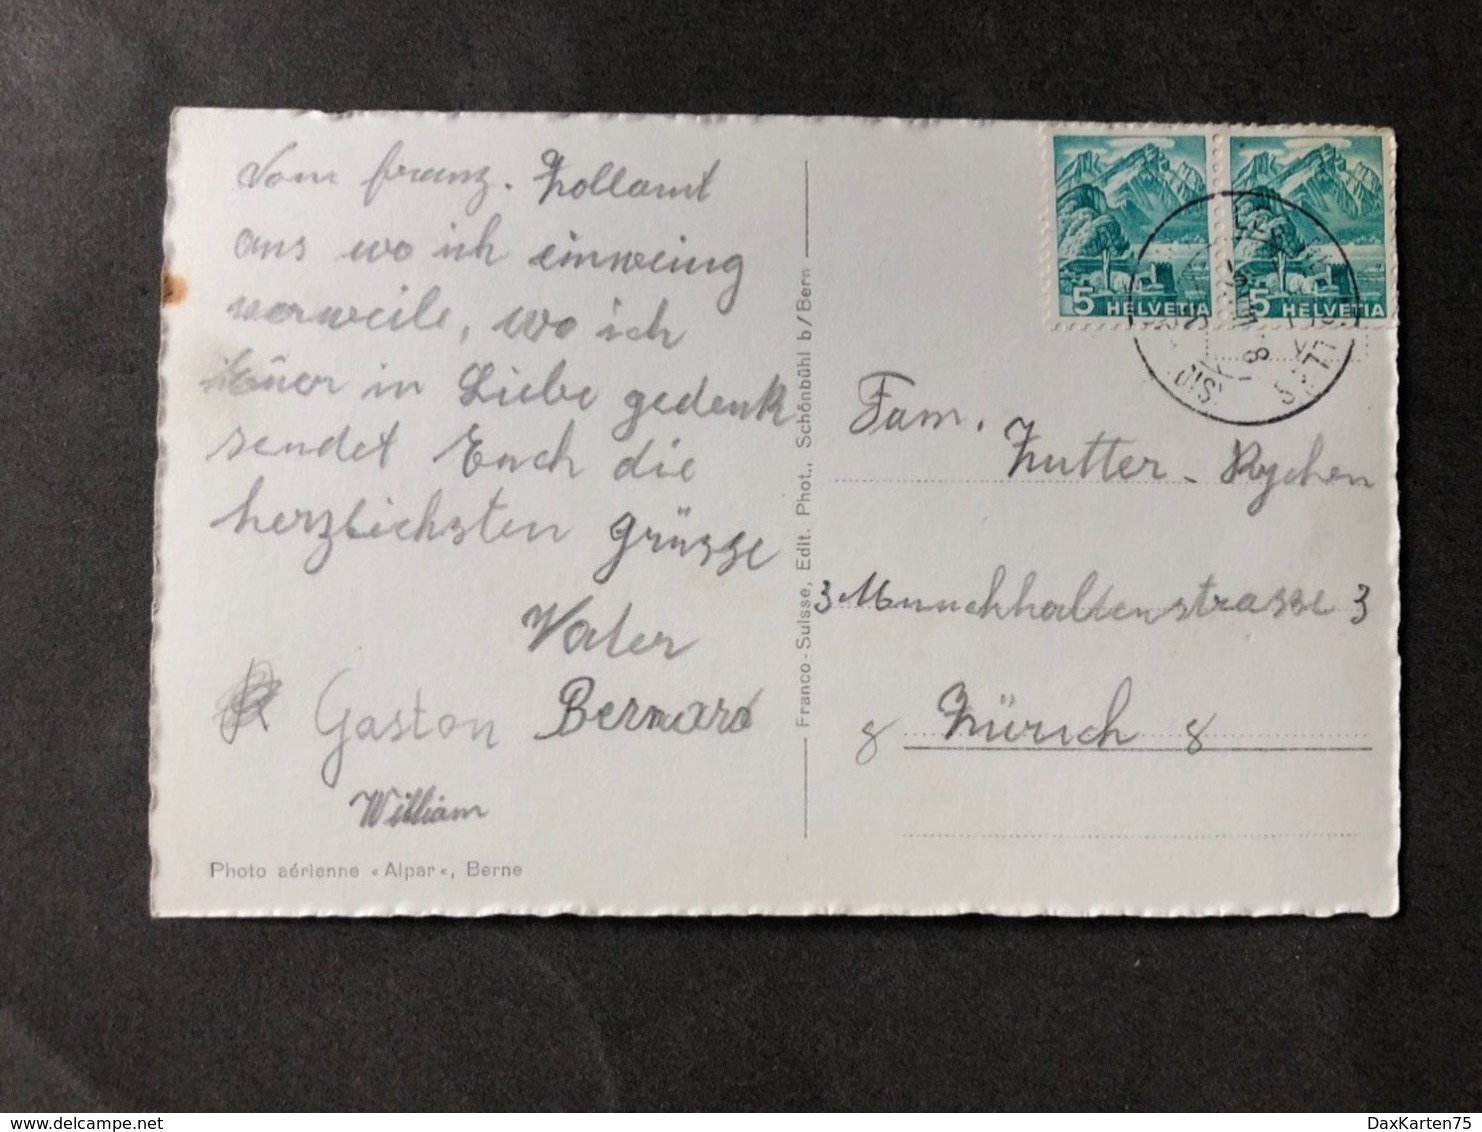 Vom franz. Zollamt
aus wo ich einwenig
verweile, wo ich
Euer in Liebe gedenk
sendet Euch die
herzlichsten Grüsse
Vater
Gaston Bernard
William
Photo aérienne «Alpar«, Berne
Franco-Suisse, Edit. Phot., Schönbühl b/Bern
5 HELVETIA
5 HELVETIA
Fam.
Zutter - Rychen
3 Munchhaltenstrasse 3
8 Zürich 8
delcampe.net
DaxKarten75